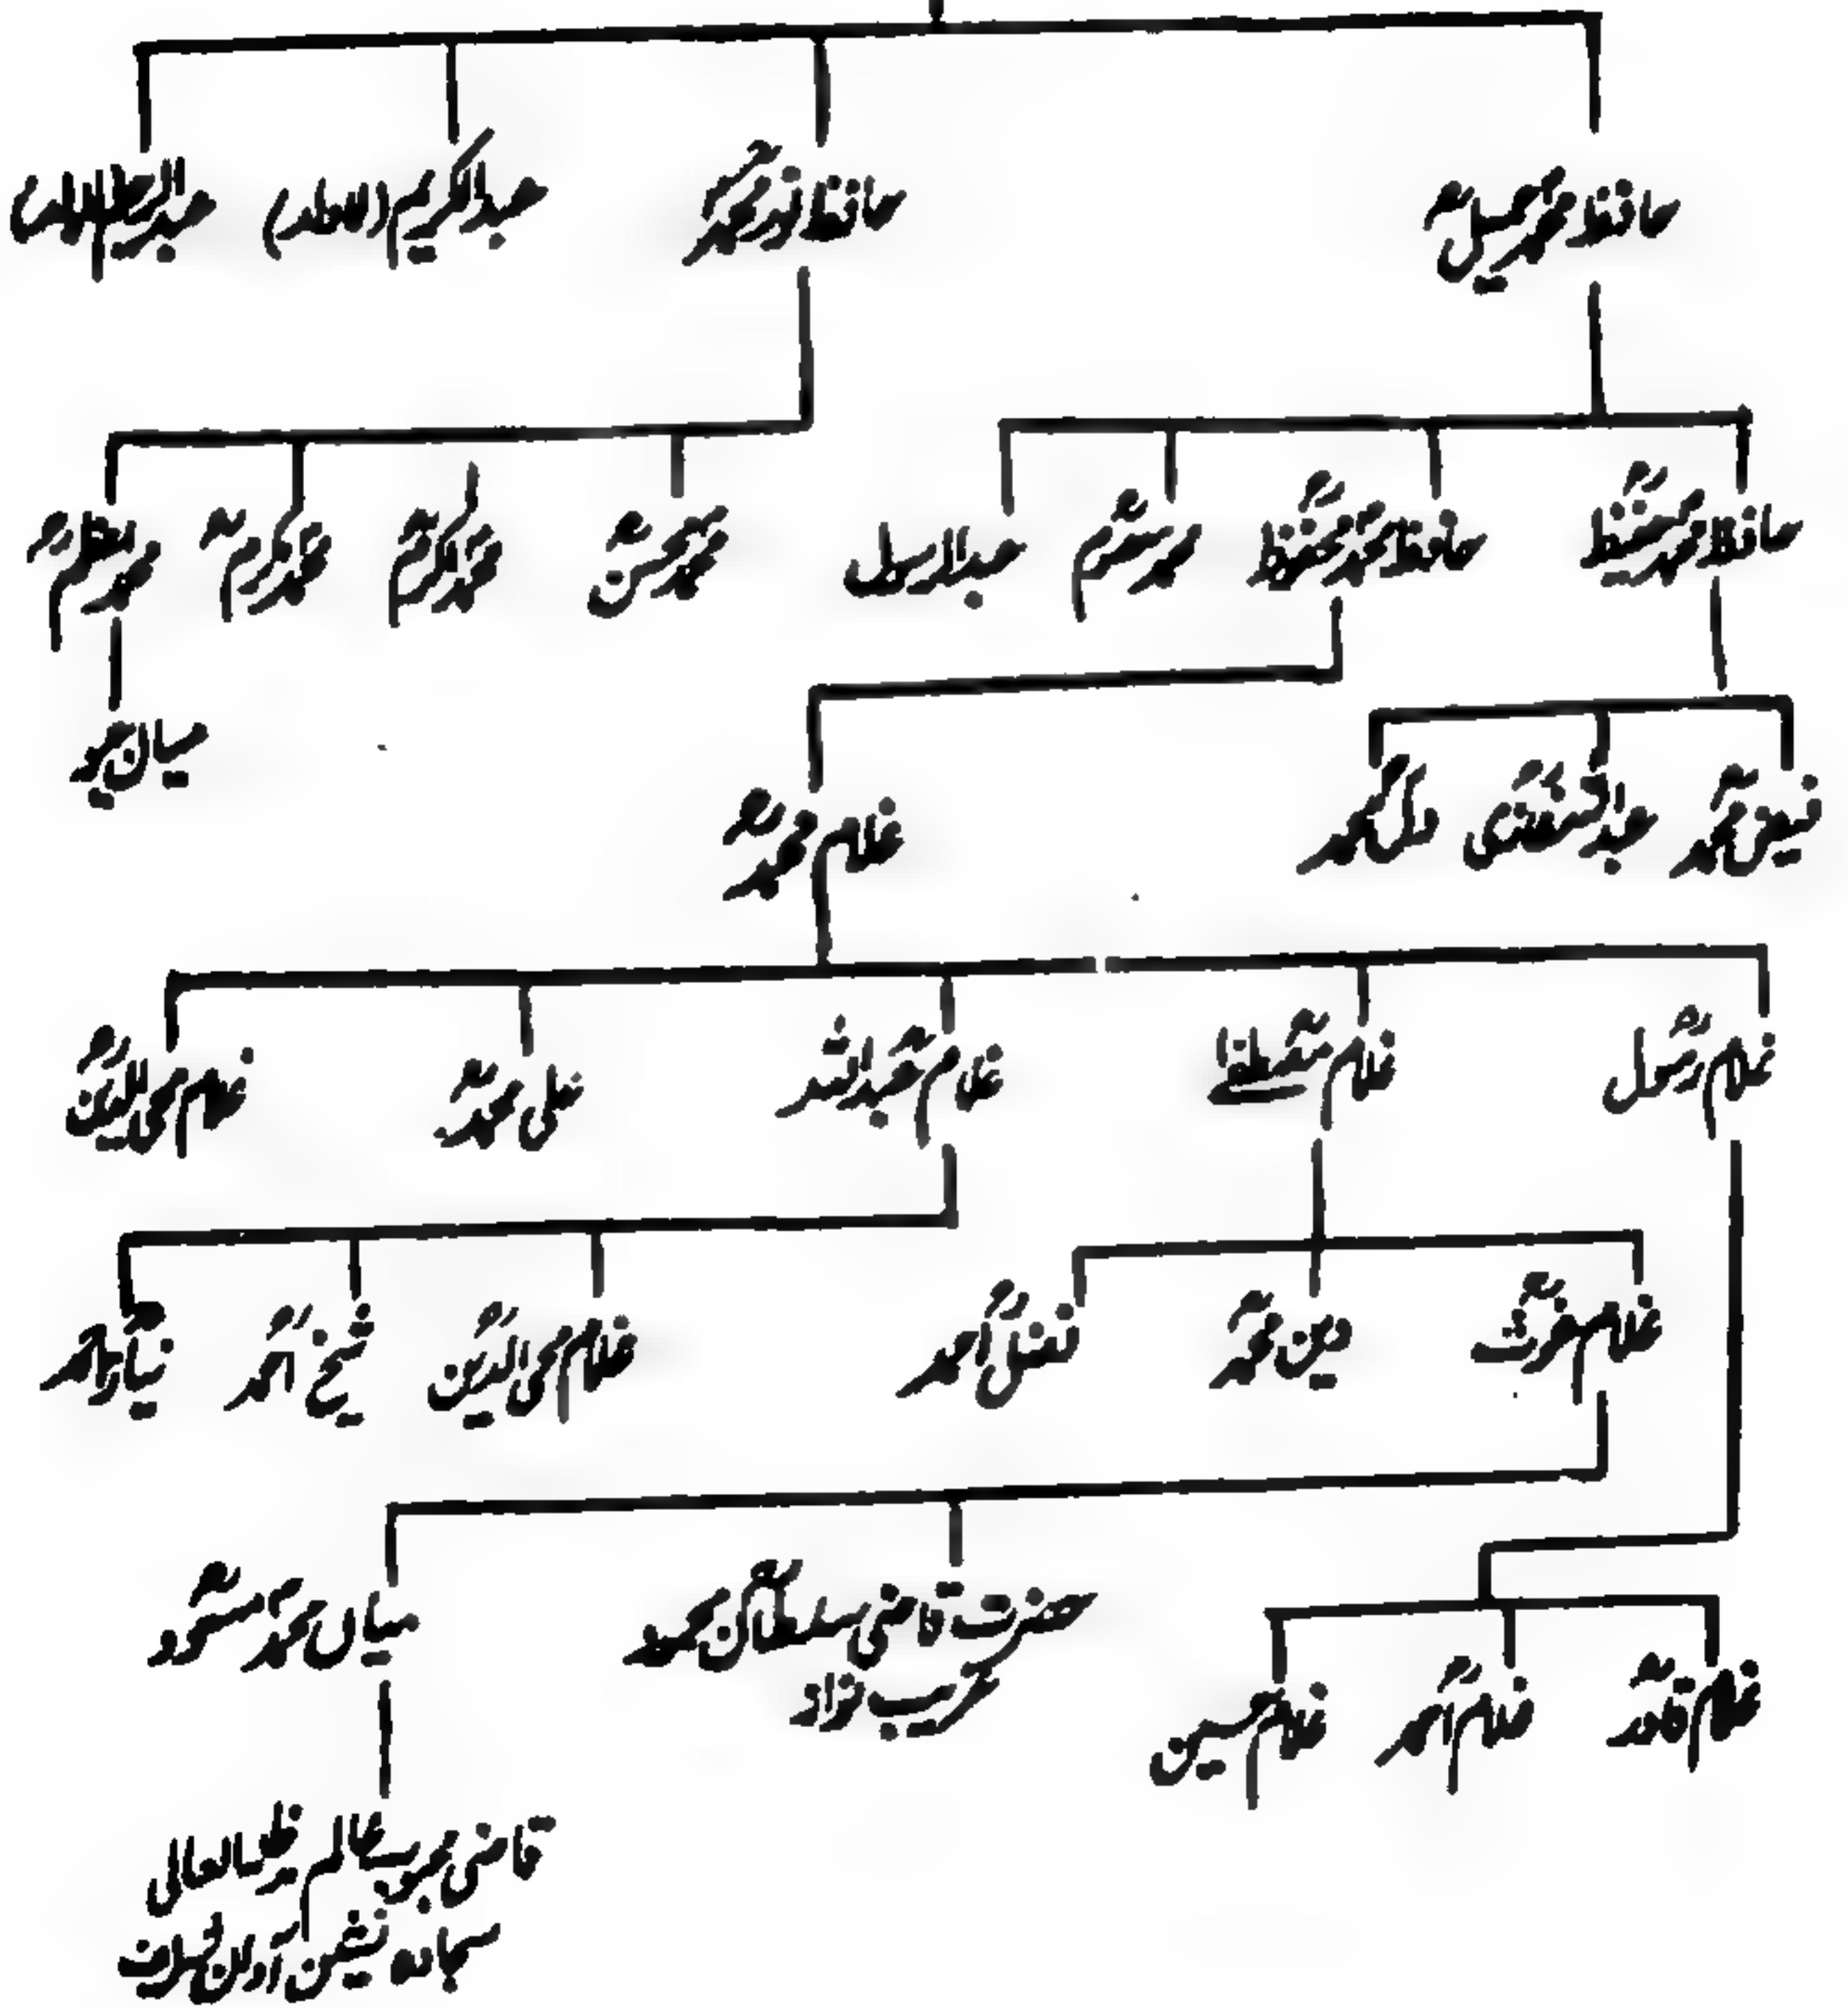 حافظ محمد جمیلؒ
حافظ نور محمدؒ
عبدالکریم (لاولد)
عبدالرحیم (لاولد)
حافظ محمد
حافظ محمد محفوظؒ
محمد
عبدالرسول
محمد محسنؒ
محمد اکرمؒ
محمد مکرمؒ
محمد اعظمؒ
فیض محمدؒ
عبد
محمد
غلام محمدؒ
میاں
غلام رسولؒ
غلام مصطفےٰؒ
غلام عبداللہؒ
علی محمدؒ
غلام محی الدینؒ
غلام غوثؒ
دین محمدؒ
فضل احمدؒ
غلام محی الدینؒ
شیخ احمدؒ
نیاز احمدؒ
حضرت قاضی سلطان محمودؒ
غریب نواز
میاں محمد مسعودؒ
غلام قادرؒ
غلام احمدؒ
غلام حسین
قاضی محبوب عالم مدظلہ العالی
سجادہ نشین آوان شریف